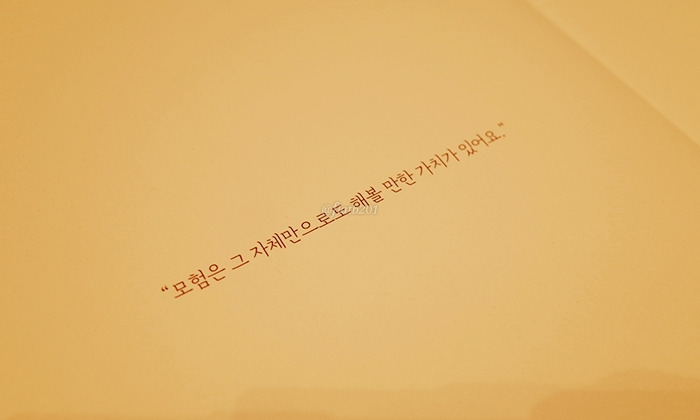 “모험은 그 자체만으로도 해볼 만한 가치가 있어요.”